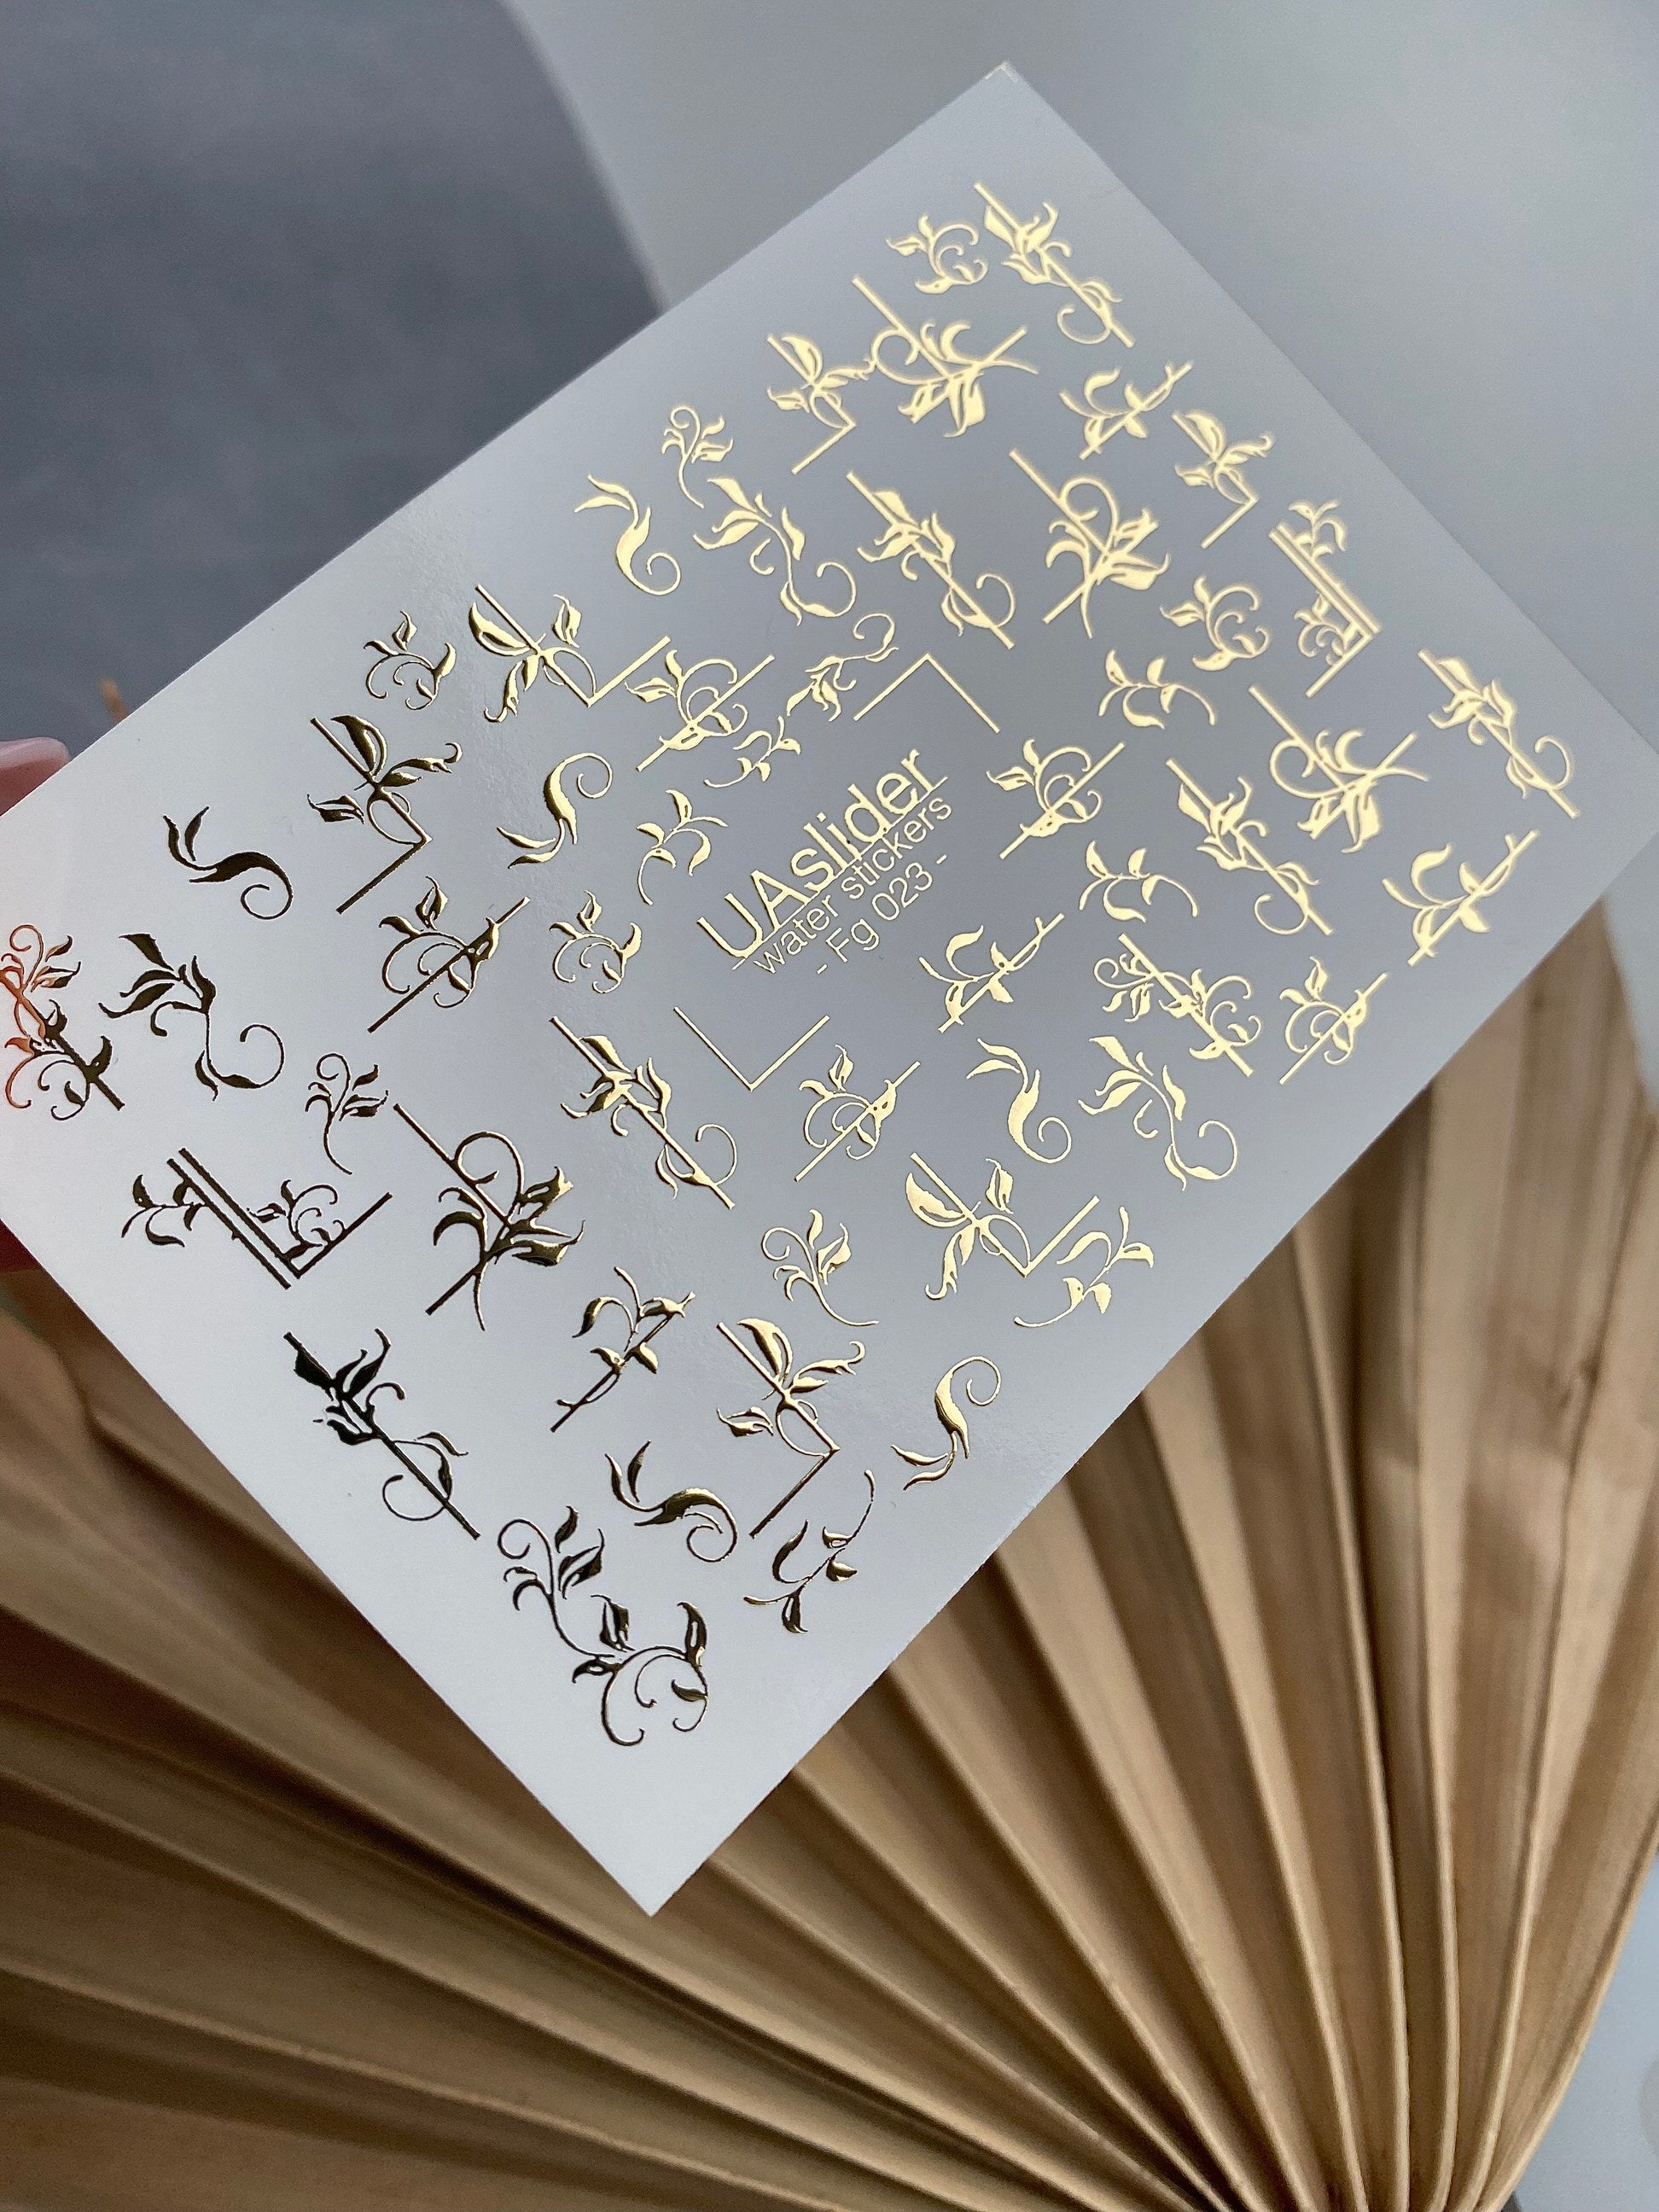 UAslider
water stickers
- Fg 023 -